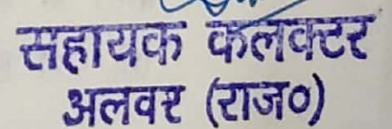 सहायक कलक्टर
अलवर (राज०)